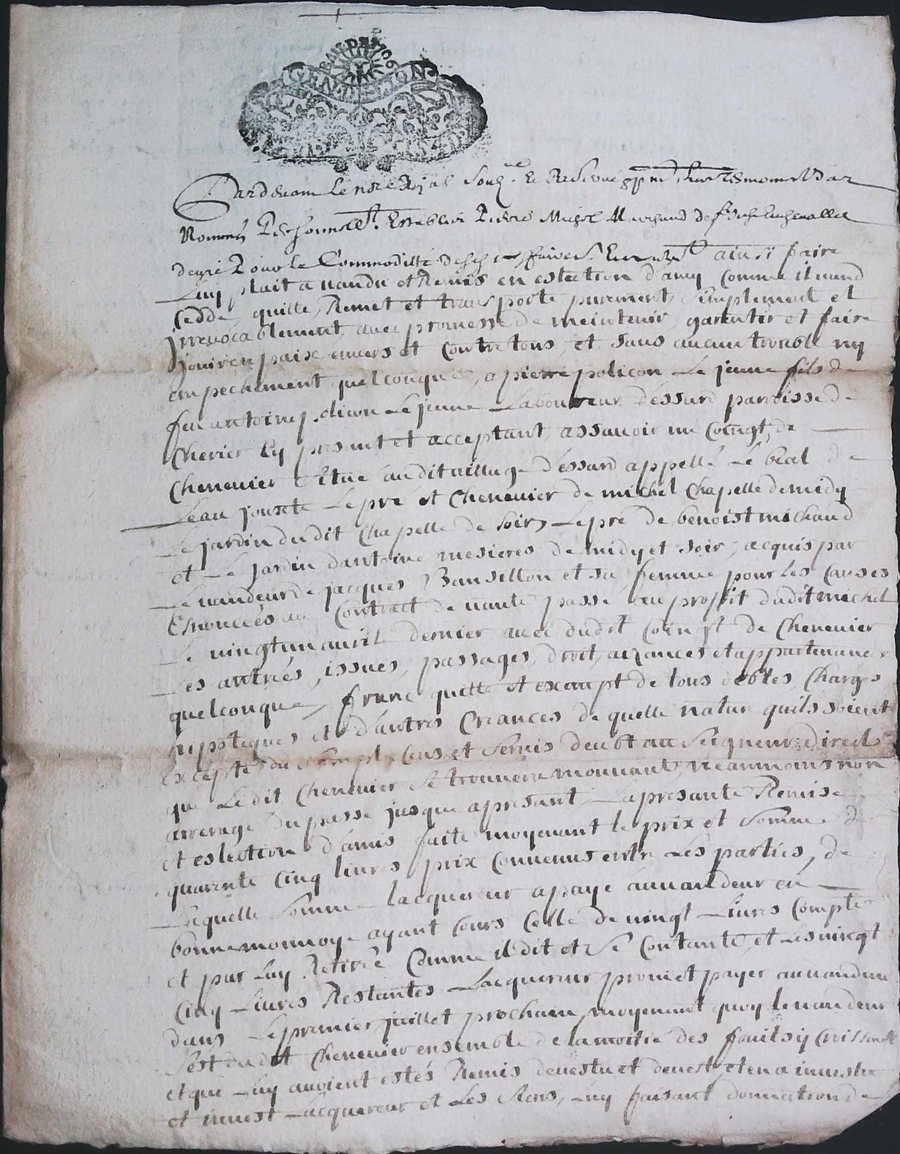 GEN DE LION
Pardevant le no.re Royal Souz.né et
Nommés Personnellt. Establis Pierre Michel Marchand de
de gré Pour la Commoditté de ses affaires ainsi faire
Luy plait a vandu et Remis en eslection d'amy Comme il vand
Cedde quitte, Remet et transporte purement, Simplement et
jrrevocablement, avec promesse de meintenir, garentir et faire
jouir en paix envers et Contre tous, et sans aucun trouble ny
empechement quelconque, a pierre policon Le jeune fils de
feu antoine policon Le jeune Laboureur d'essard parroisse de
Cherier Ey present et acceptant, assavoir un Coingt, de
Chenevier situé audit village d'essard appellé Le béal de
Leau jouxte Le pré et Chenevier de michel Chapelle de midy
Le jardin dudit Chapelle de soir, Le pré de benoist michaud
et Le jardin dantoine mesieres de midy et soir, acquis par
Le vandeur de jacques Bansillon et sa femme pour les Causes
Enoncées au Contract de vante passé au proffit dudit michel
Le vingt un avril dernier avec dudit Coingt de Chenevier
Les antrées, issues, passages, droit, aizances et appartenances
quelconques, franc quitte et exempt de tous debtes, Charges
hippoteques et d'autres Creances de quelle nature quils soient
Excepté du Simple Cens et Servis deubt au Seigneur direct
que Le dit Chenevier se trouvera mouvant, neanmoins non
arrerage du passé jusque apresant, La presante Remise
et eslection d'amis faite moyenant le prix et Somme de
quarente Cinq livres prix Convenus entre Les parties, de
Laquelle Somme Lacquereur a payé au vandeur en
bonne monnoye ayant Cours Celle de vingt Livres Comptée
et par Luy Retirée Comme il dit et se Contante, et Les vingt
Cinq Livres Restantes Lacquereur promet payer au vandeur
dans Le premier juillet prochain, moyenant quoy le vandeur
s'est dudit Chenevier ensemble de la moitié des fruits y Croissant
et que Luy avoient estés Remis devestu et devest et en a investu
et invest Lacquereur et Les siens, Luy faisant donnation de